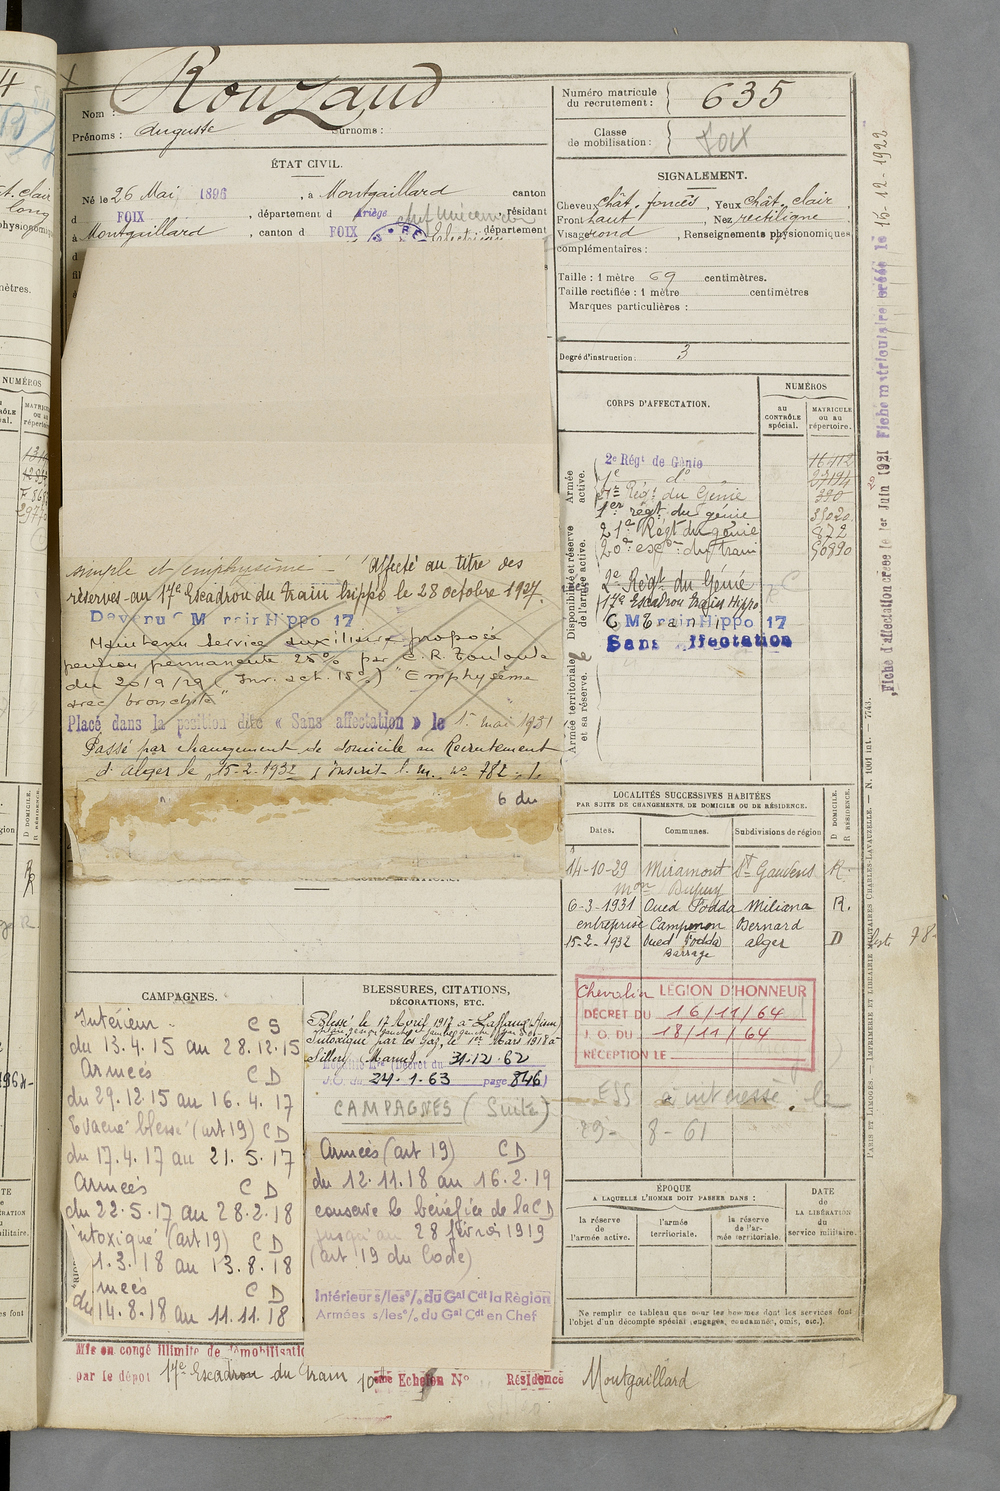 Rouzaud
Nom :
Prénoms : Auguste Surnoms :
ÉTAT CIVIL.
Né le 26 Mai 1896, à Montgaillard canton
d FOIX, département d Ariège, résidant
à Montgaillard, canton d FOIX département
Numéro matricule
du recrutement : 635
Classe
de mobilisation : FOIX
SIGNALEMENT.
Cheveux chât. foncés, Yeux chât. clair,
Front haut, Nez rectiligne
Visage rond, Renseignements physionomiques
complémentaires :
Taille : 1 mètre 69 centimètres.
Taille rectifiée : 1 mètre centimètres
Marques particulières :
Degré d'instruction : 3
CORPS D'AFFECTATION.
NUMÉROS
au
CONTRÔLE
spécial.
MATRICULE
ou au
répertoire.
Armée
active.
2e Régt de Génie 16112
7e do 27194
Régt du Génie 390
1er régt du génie 35020
21e Régt du génie 872
20e escon du train 50990
Disponibilité et réserve
de l'armée active.
2e Régt du Génie
17e Escadron train Hippo
C M Train Hippo 17
Sans affectation
Armée territoriale
et sa réserve.
simple et emphysème - Affecté au titre des
réserves au 17e Escadron du train hippo le 28 octobre 1927.
Devenu C M Train Hippo 17
Maintenu service auxiliaire proposé
pension permanente 25% par C.R. Toulouse
du 20/9/29 (Inv. act. 15%) "Emphysème
avec bronchite"
Placé dans la position dite « Sans affectation » le 1er mai 1931
Passé par changement de domicile au Recrutement
d'Alger le 15-2-1932, inscrit l. m. no 782.
6 du
LOCALITÉS SUCCESSIVES HABITÉES
PAR SUITE DE CHANGEMENTS DE DOMICILE OU DE RÉSIDENCE.
Dates. Communes. Subdivisions de région
D DOMICILE.
R RÉSIDENCE.
14-10-29 Miramont St Gaudens R.
mon Dupuy
6-3-1931 Oued Fodda Miliana R.
entreprise Campenon Bernard
15-2-1932 Oued Fodda alger D
Barrage
Chevalier LÉGION D'HONNEUR
DÉCRET DU 16/11/64
J. O. DU 18/11/64
RÉCEPTION LE
ESS à intéressé le
29- 8-61
CAMPAGNES.
Intérieur CS
du 13.4.15 au 28.12.15
Armées CD
du 29.12.15 au 16.4.17
Evacué blessé (art 19) CD
du 17.4.17 au 21.5.17
Armées CD
du 22.5.17 au 28.2.18
intoxiqué (art 19) CD
1.3.18 au 13.8.18
mées CD
du 14.8.18 au 11.11.18
BLESSURES, CITATIONS,
DÉCORATIONS, ETC.
Blessé le 17 Avril 1917 à Laffaux (Aisne)
Intoxiqué par les gaz, le 1er Mars 1918 à
Sillery (Marne).
Médaille Mre (Décret du 31.12.62
J.O. du 24.1.63 page 846)
CAMPAGNES (Suite)
Armées (art 19) CD
du 12.11.18 au 16.2.19
conserve le bénéfice de la CD
jusqu'au 28 février 1919
(art 19 du Code)
Intérieur s/les o/. du Gal Cdt la Région
Armées s/les o/. du Gal Cdt en Chef
ÉPOQUE
A LAQUELLE L'HOMME DOIT PASSER DANS :
la réserve
de
l'armée active.
l'armée
territoriale.
la réserve
de l'ar-
mée territoriale.
DATE
de
LA LIBÉRATION
du
service militaire.
Ne remplir ce tableau que pour les hommes dont les services font
l'objet d'un décompte spécial (engagés, condamnés, omis, etc.).
Mis en congé illimité de démobilisation
par le dépôt 17e Escadron du train 10ème Echelon No Résidence Montgaillard
Fiche d'affectation créée le 1er Juin 1921 Fiche matriculaire créée le 15-12-1922
PARIS ET LIMOGES. — IMPRIMERIE ET LIBRAIRIE MILITAIRES CHARLES-LAVAUZELLE. — N. 1001 int. — 7743.